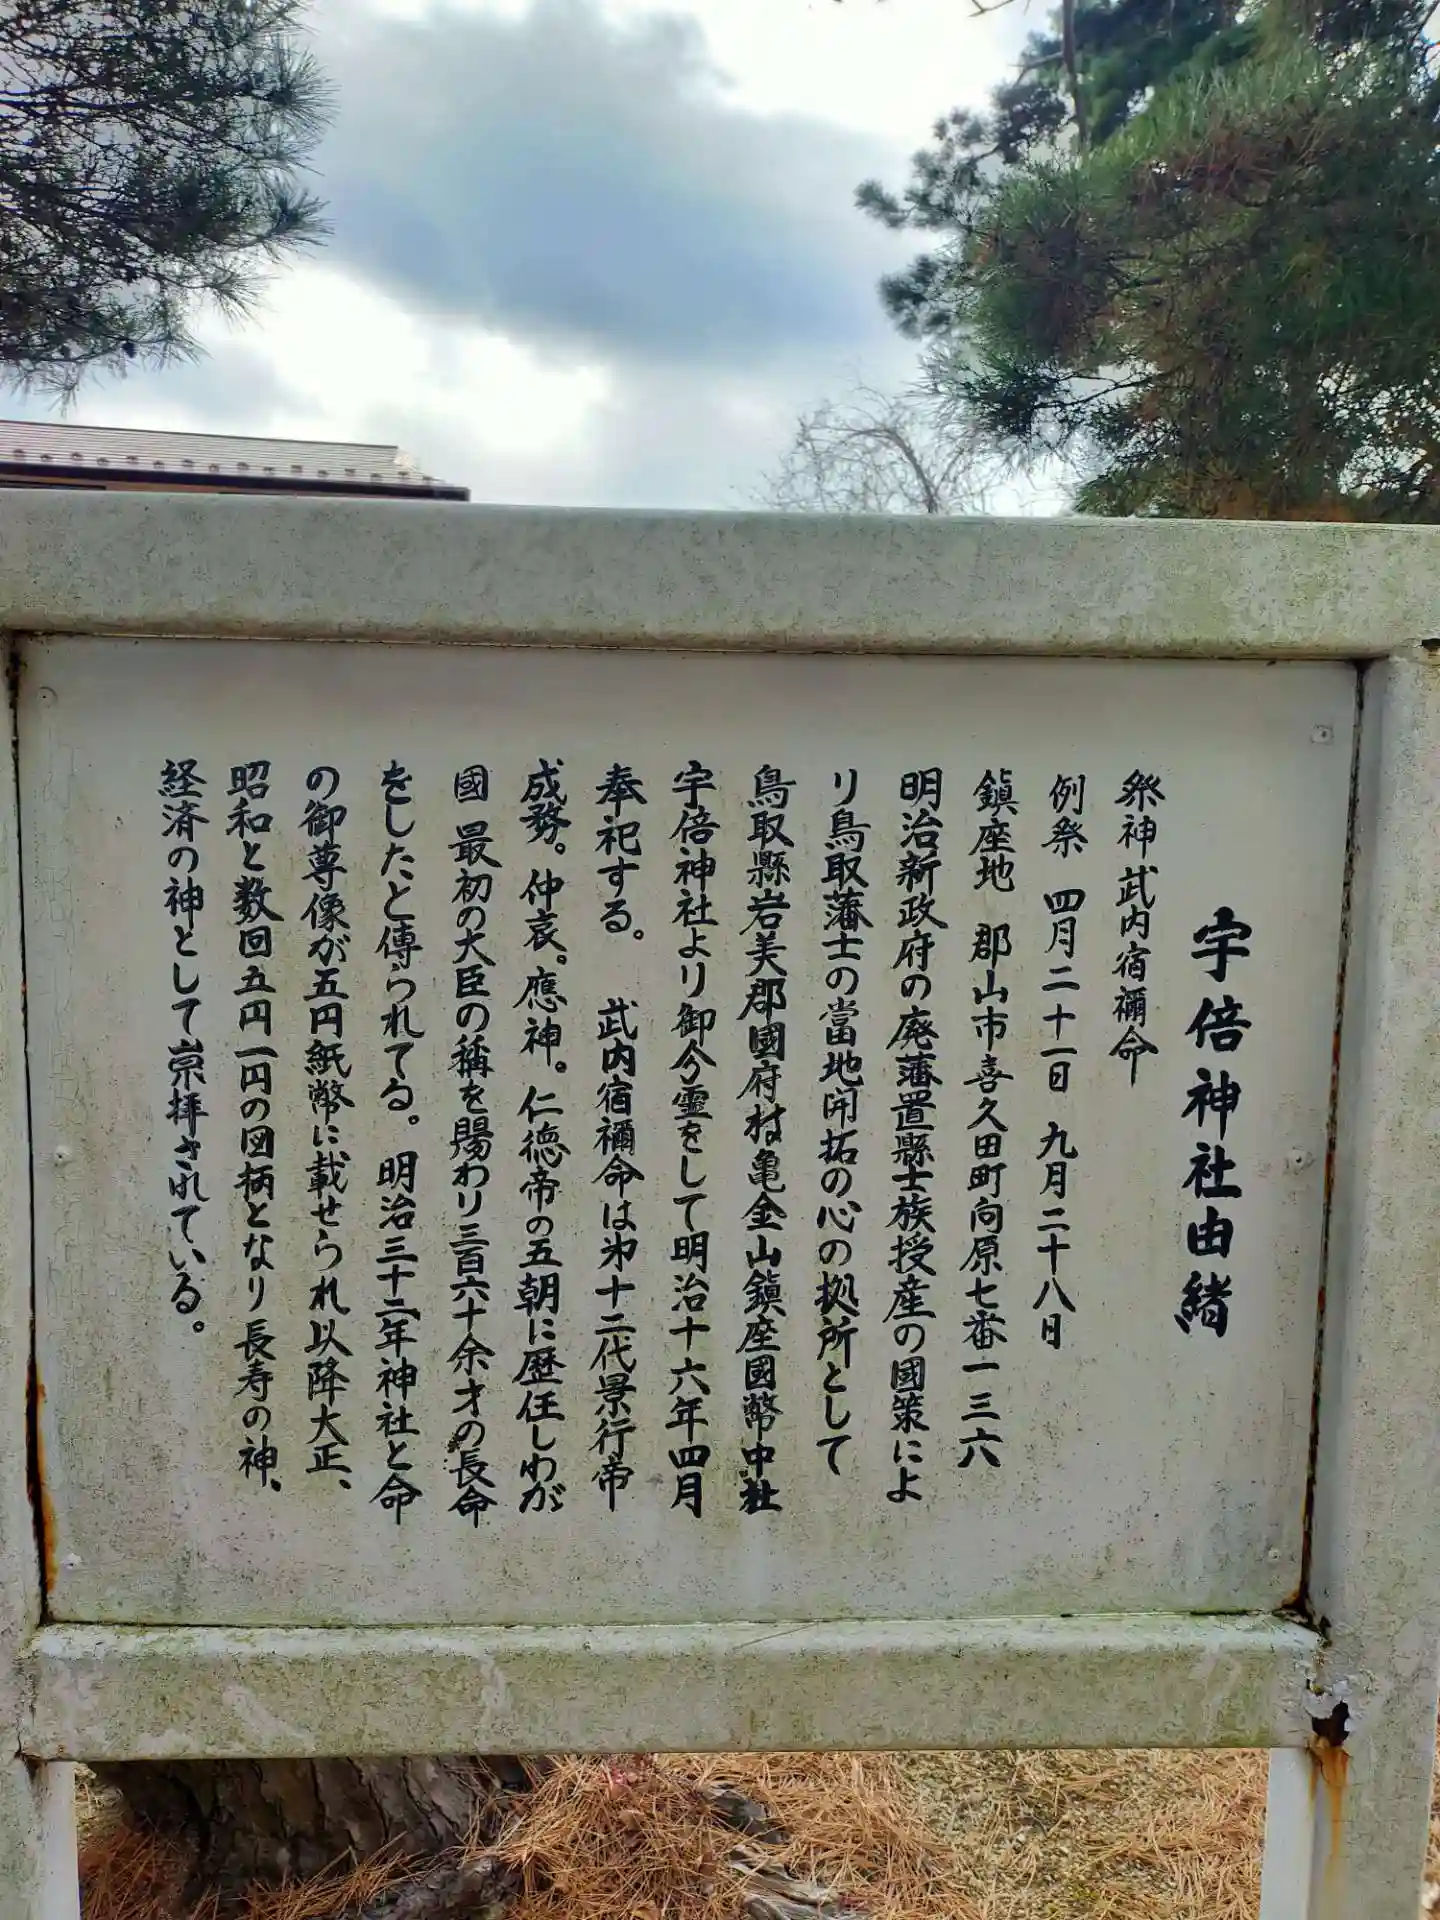 宇倍神社由緒
祭神武内宿禰命
例祭 四月二十一日 九月二十八日
鎮座地 郡山市喜久田町向原七番一三六
明治新政府の廃藩置縣士族授産の國策によ
り鳥取藩士の當地開拓の心の拠所として
鳥取縣岩美郡國府村亀金山鎮座國幣中社
宇倍神社より御分霊をして明治十六年四月
奉祀する。 武内宿禰命は第十二代景行帝
成務。仲哀。應神。仁徳帝の五朝に歴任しわが
國最初の大臣の稱を賜わり三百六十余才の長命
をしたと傳られてる。明治三十二年神社と命
の御尊像が五円紙幣に載せられ以降大正、
昭和と数回五円一円の図柄となり長寿の神、
経済の神として崇拝されている。